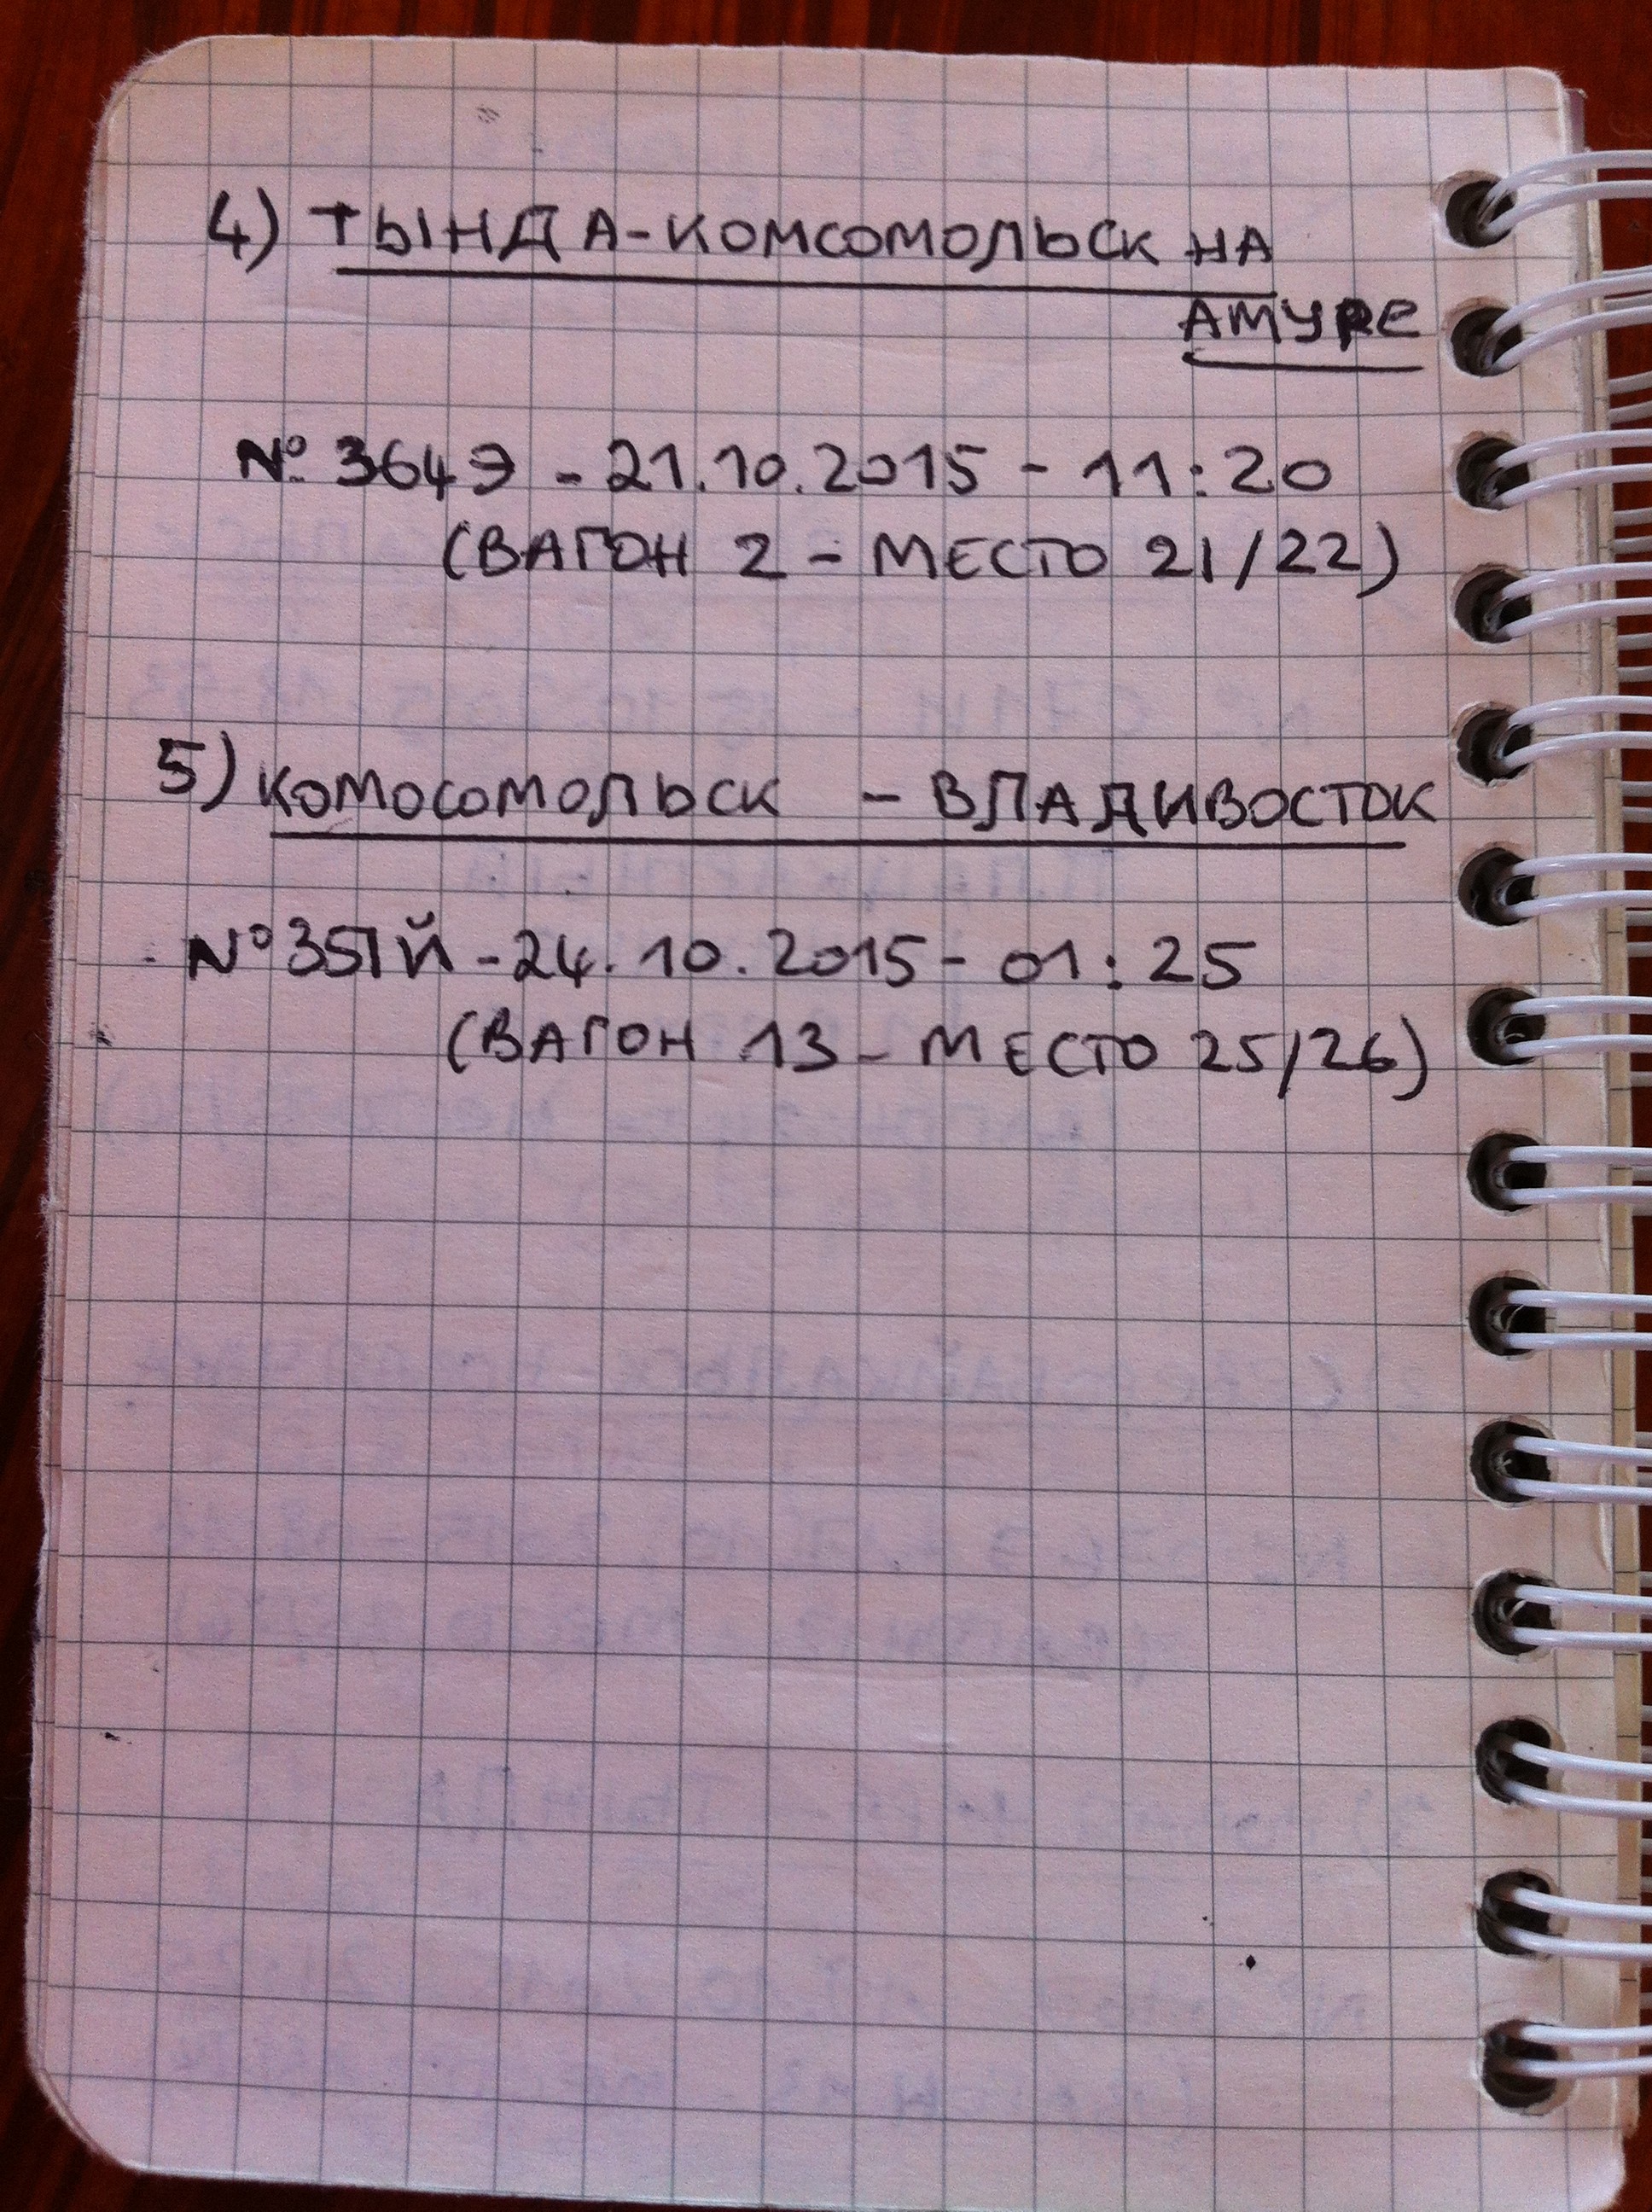 4) ТЫНДА-КОМСОМОЛЬСК НА
АМУРЕ
№ 364Э - 21.10.2015 - 11:20
(ВАГОН 2 - МЕСТО 21/22)
5) КОМОСОМОЛЬСК - ВЛАДИВОСТОК
№ 351Й - 24.10.2015 - 01:25
(ВАГОН 13 - МЕСТО 25/26)